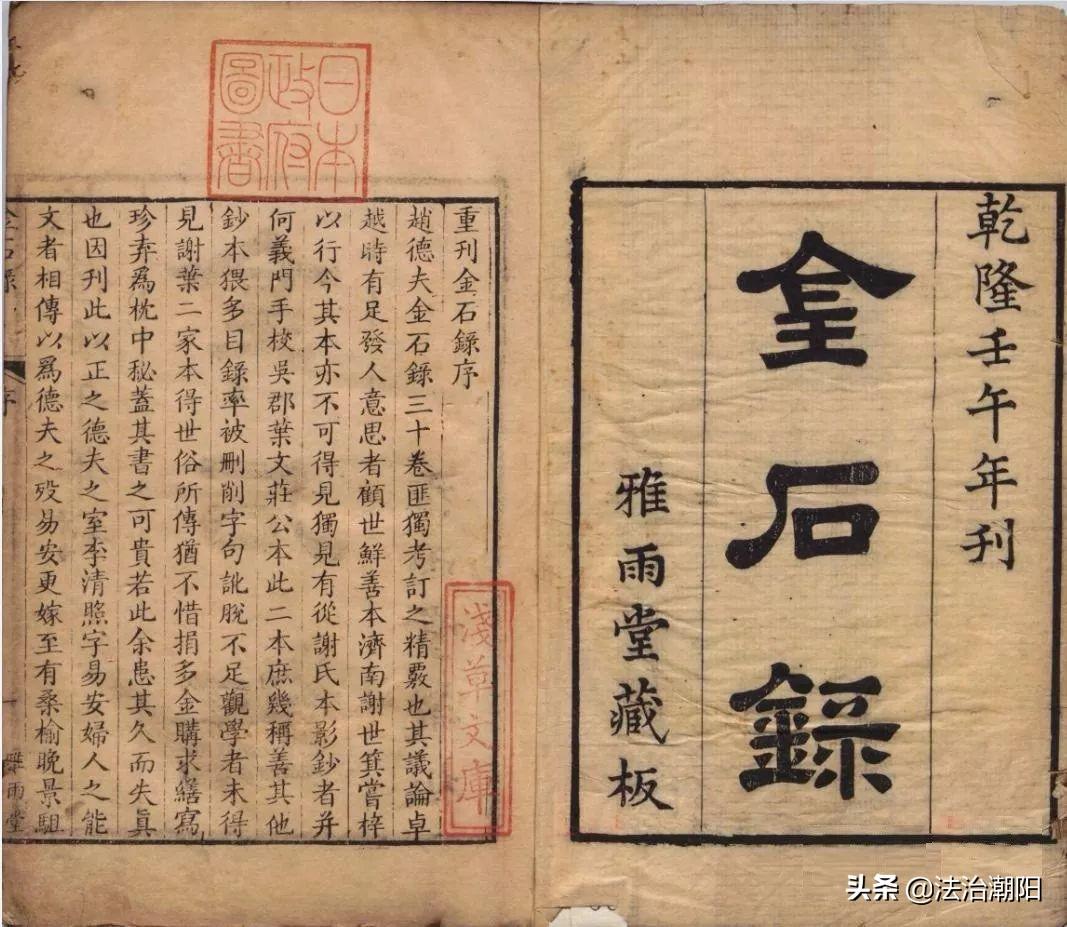 乾隆壬午年刊
金石錄
雅雨堂藏板
日本政府圖書
重刊金石錄序
趙德夫金石錄三十卷匪獨考訂之精覈也其議論卓
越時有足發人意思者顧世鮮善本濟南謝世箕嘗梓
以行今其本亦不可得見獨見有從謝氏本影鈔者并
何義門手校吳郡葉文莊公本此二本庶幾稱善其他
鈔本猥多目錄率被刪削字句訛脫不足觀學者未得
見謝葉二家本得世俗所傳猶不惜捐多金購求繕寫
珍弆爲枕中秘蓋其書之可貴若此余患其久而失眞
也因刊此以正之德夫之室李清照字易安婦人之能
文者相傳以爲德夫之歿易安更嫁至有桑榆晚景駔
金石錄 序 一 雅雨堂
淺草文庫
头条 @法治潮阳